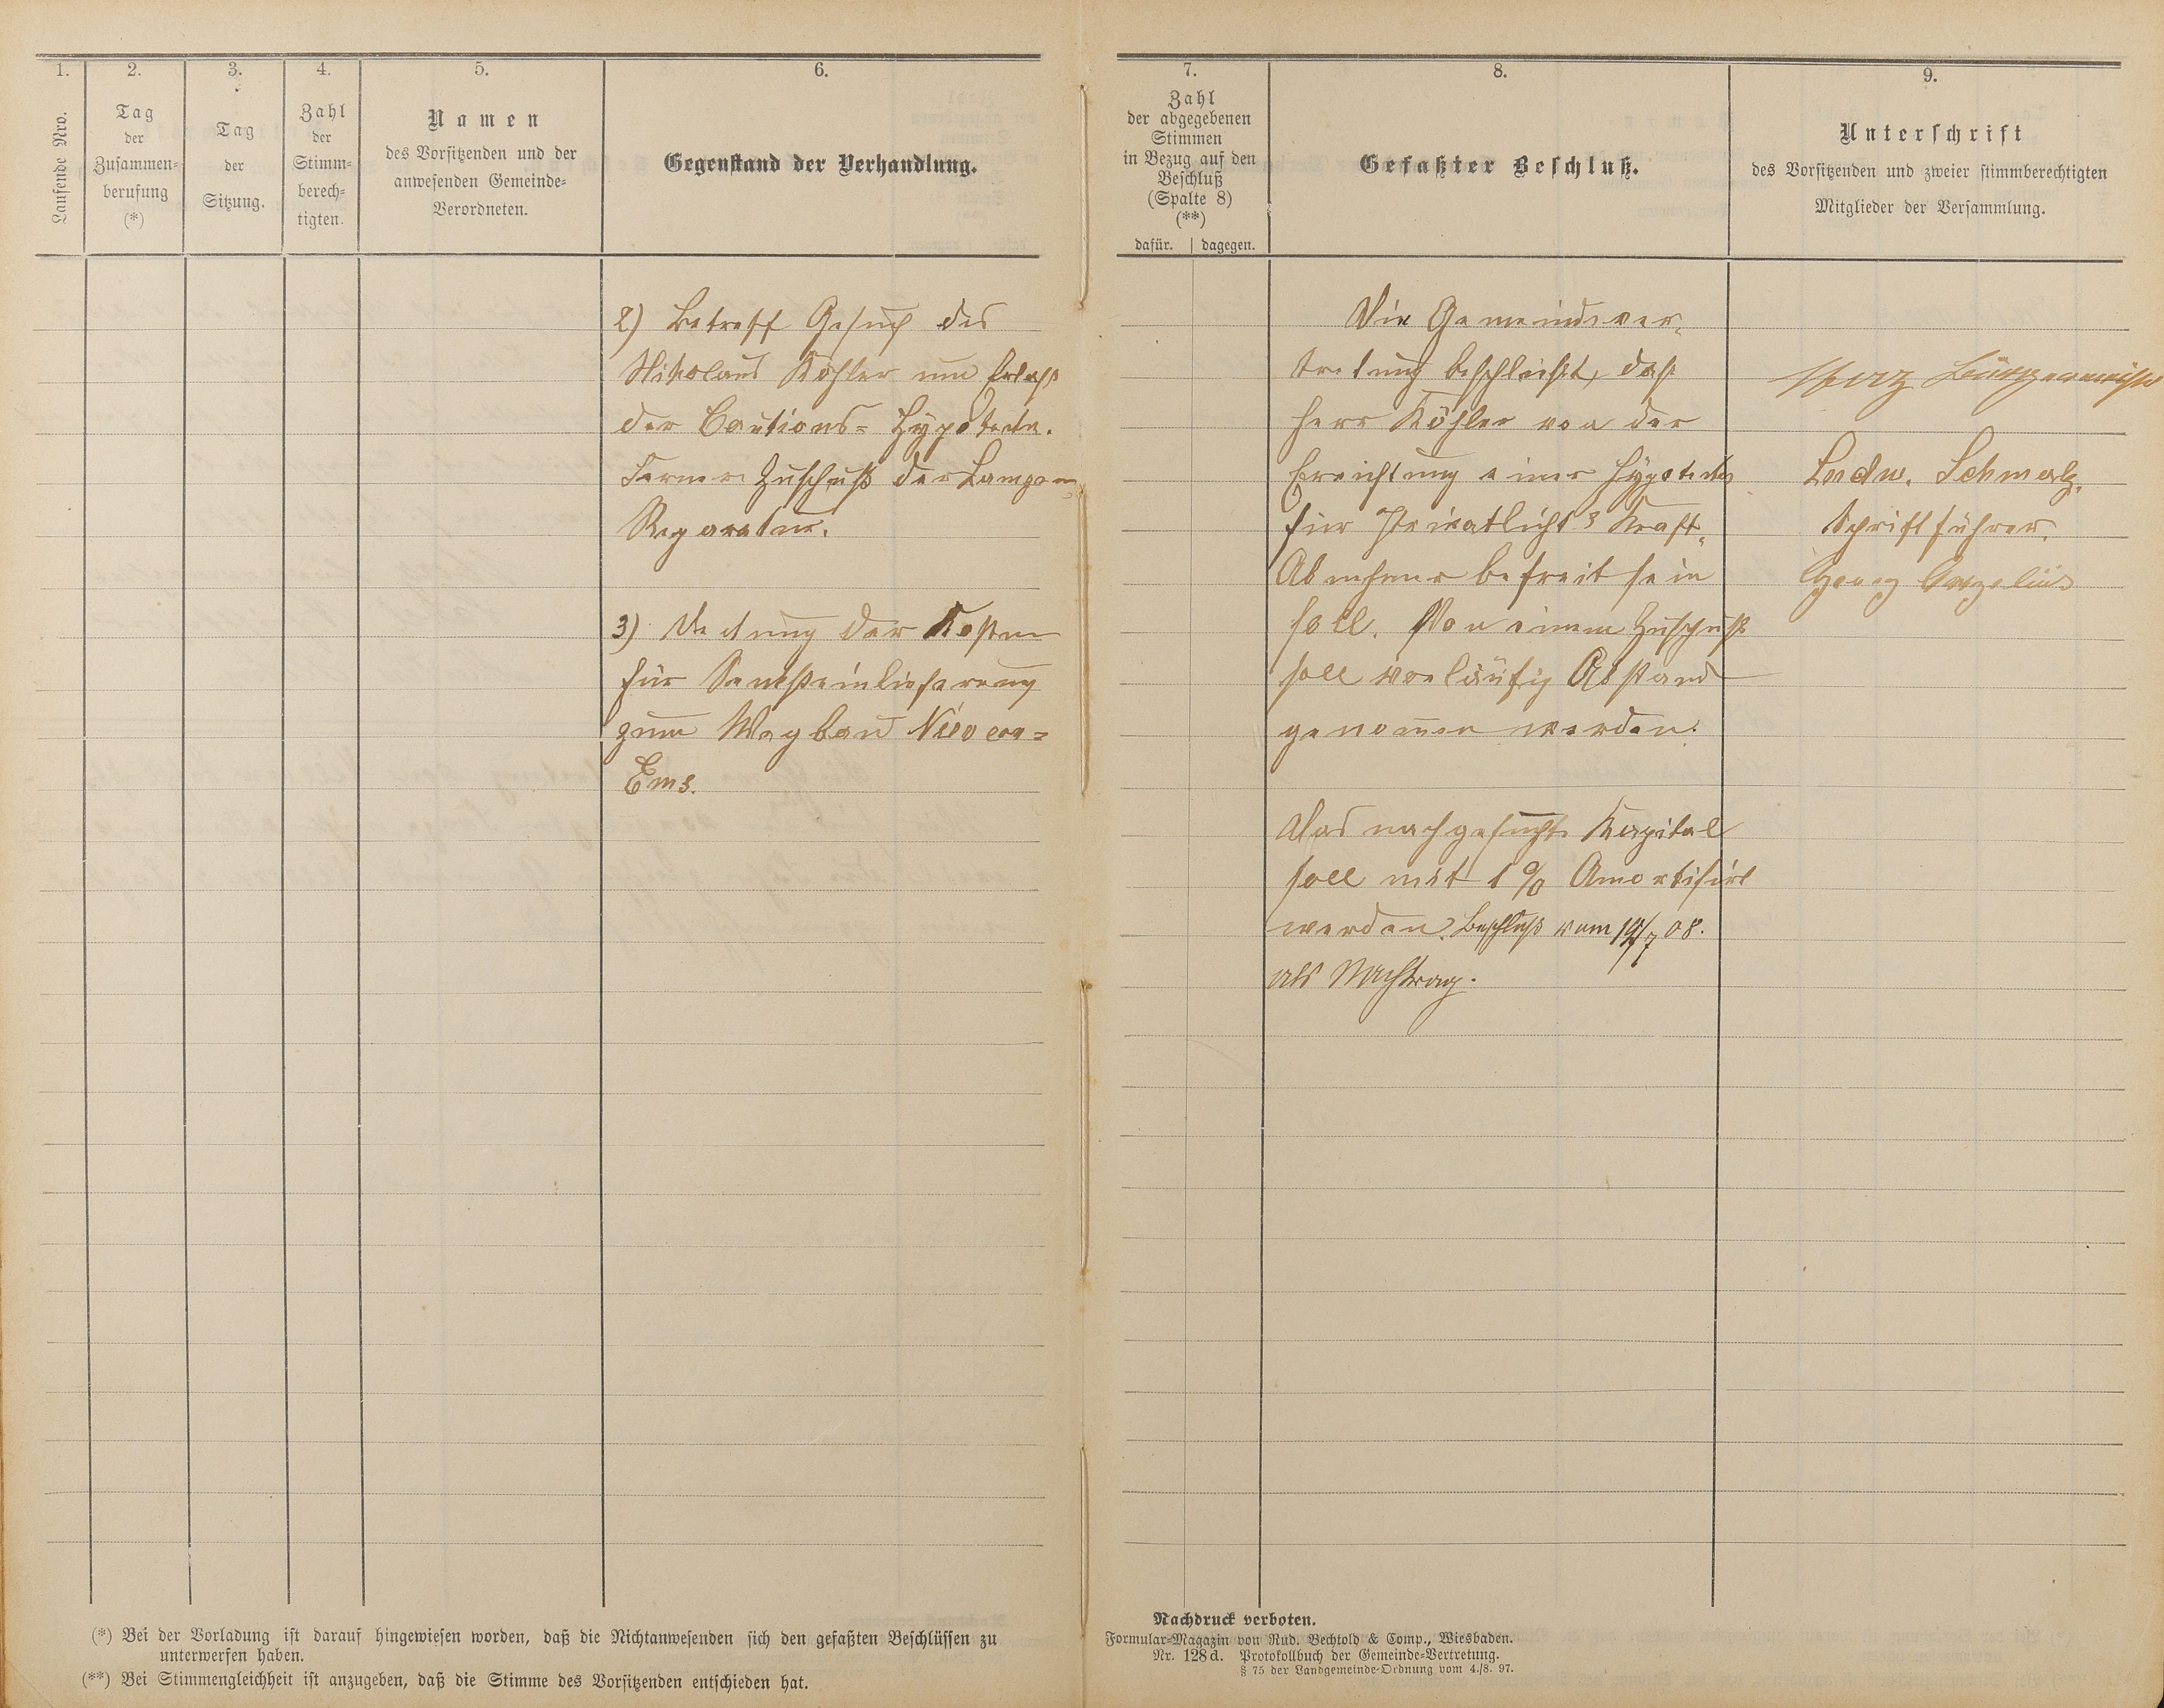 1.
2.
3.
4.
5.
6.
Laufende Nro.
Tag
der
Zusammen=
berufung
(*)
Tag
der
Sitzung.
Zahl
der
Stimm=
berech=
tigten.
Namen
des Vorsitzenden und der
anwesenden Gemeinde=
Verordneten.
Gegenstand der Verhandlung.
2) Betreff Gesuch des
Nikolaus Köhler um Erlaß
der Cautions= Hypoteke.
Ferner Zuschuß der Lampen=
Reparatur.
3) Deckung der Kosten
für Sandsteinlieferung
zum Wegbau Nievern=
Ems.
(*) Bei der Vorladung ist darauf hingewiesen worden, daß die Nichtanwesenden sich den gefaßten Beschlüssen zu
unterwerfen haben.
(**) Bei Stimmengleichheit ist anzugeben, daß die Stimme des Vorsitzenden entschieden hat.
7.
8.
9.
Zahl
der abgegebenen
Stimmen
in Bezug auf den
Beschluß
(Spalte 8)
(**)
dafür. | dagegen.
Gefaßter Beschluß.
Unterschrift
des Vorsitzenden und zweier stimmberechtigten
Mitglieder der Versammlung.
Die Gemeindever=
tretung beschließt, daß
Herr Köhler von der
Errichtung einer Hypoteke
für Privatlicht & Kraft=
Abnehmer befreit sein
soll. Von einem Zuschuß
soll vorläufig Abstand
genommen werden.
Das nachgesuchte Kapital
soll mit 1 % Amortisirt
werden. Beschluß vom /7 08.
als Nachtrag.
Bürgermeister
Ludw. Schmalz.
Schriftführer.
Georg
Nachdruck verboten.
Formular=Magazin von Rud. Bechtold & Comp., Wiesbaden.
Nr. 128d. Protokollbuch der Gemeinde=Vertretung.
§ 75 der Landgemeinde=Ordnung vom 4./8. 97.